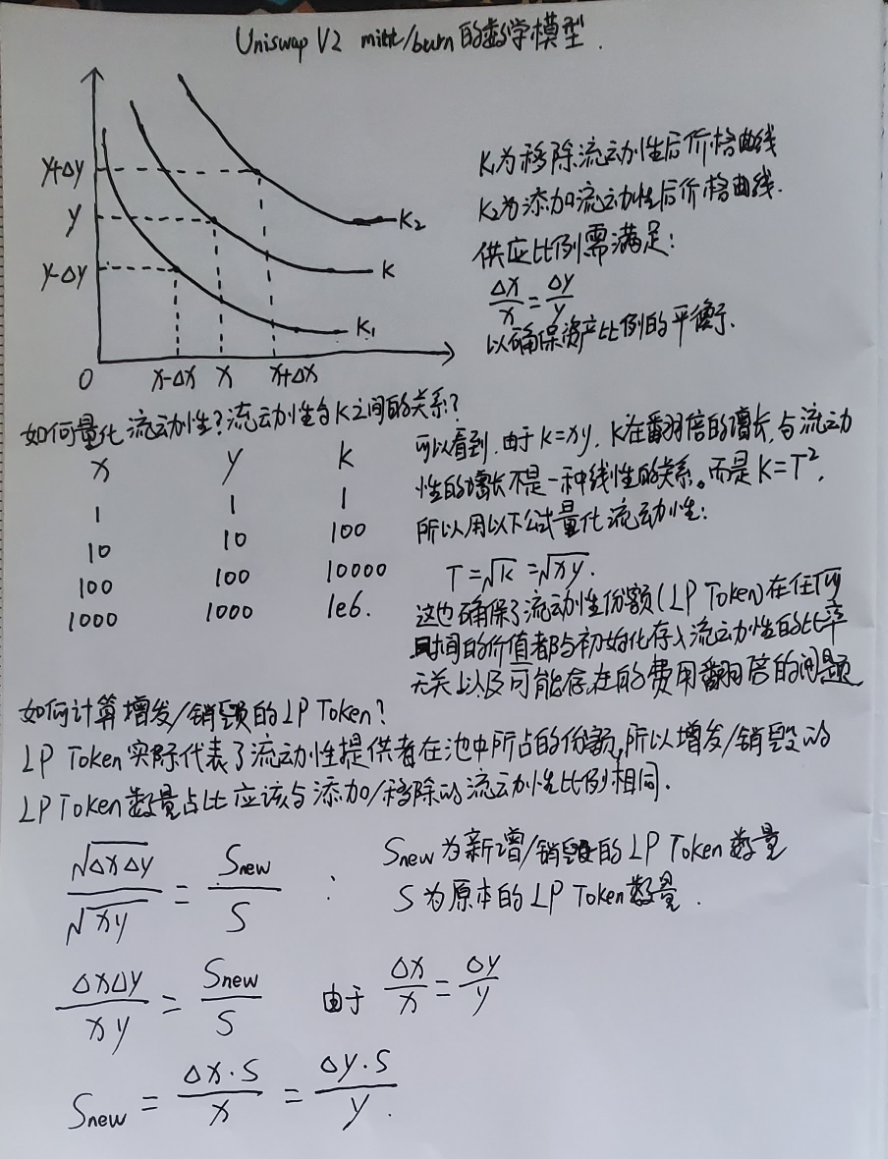 Uniswap V2 mint/burn的数学模型.
y+Δy
y
y-Δy
K₂
K
K₁
0
x-Δx
x
x+Δx
K₁为移除流动性后价格曲线
K₂为添加流动性后价格曲线.
供应比例需满足:
Δx/x = Δy/y
以确保资产比例的平衡.
如何量化流动性?流动性与K之间的关系?
x y K
1 1 1
10 10 100
100 100 10000
1000 1000 1e6.
可以看到,由于K=xy,K在翻倍的增长,与流动
性的增长不是一种线性的关系。而是K=T²,
所以用以下公式量化流动性:
T=√K=√xy.
这也确保了流动性份额(LP Token)在任何
时间的价值都与初始化存入流动性的比率
无关以及可能存在的费用翻倍的问题
如何计算增发/销毁的LP Token?
LP Token实际代表了流动性提供者在池中所占的份额,所以增发/销毁的
LP Token数量占比应该与添加/移除的流动性比例相同.
√ΔxΔy/√xy = Snew/S :
Snew为新增/销毁的LP Token数量
S为原本的LP Token数量.
ΔxΔy/xy = Snew/S 由于 Δx/x = Δy/y
Snew = Δx·S/x = Δy·S/y.